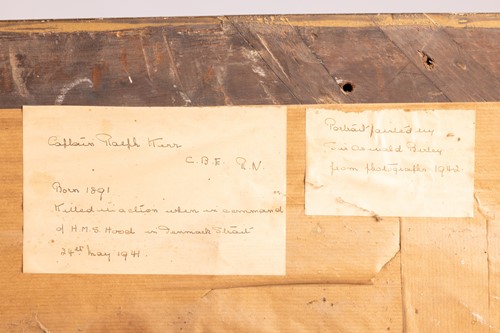 Captain Ralph Kerr
C.B.E. R.N.
Born 1891
Killed in action when in command
of H.M.S Hood in Denmark Strait
24th May 1941.
Portrait painted by
Sir Oswald Birley
from photographs 1942.